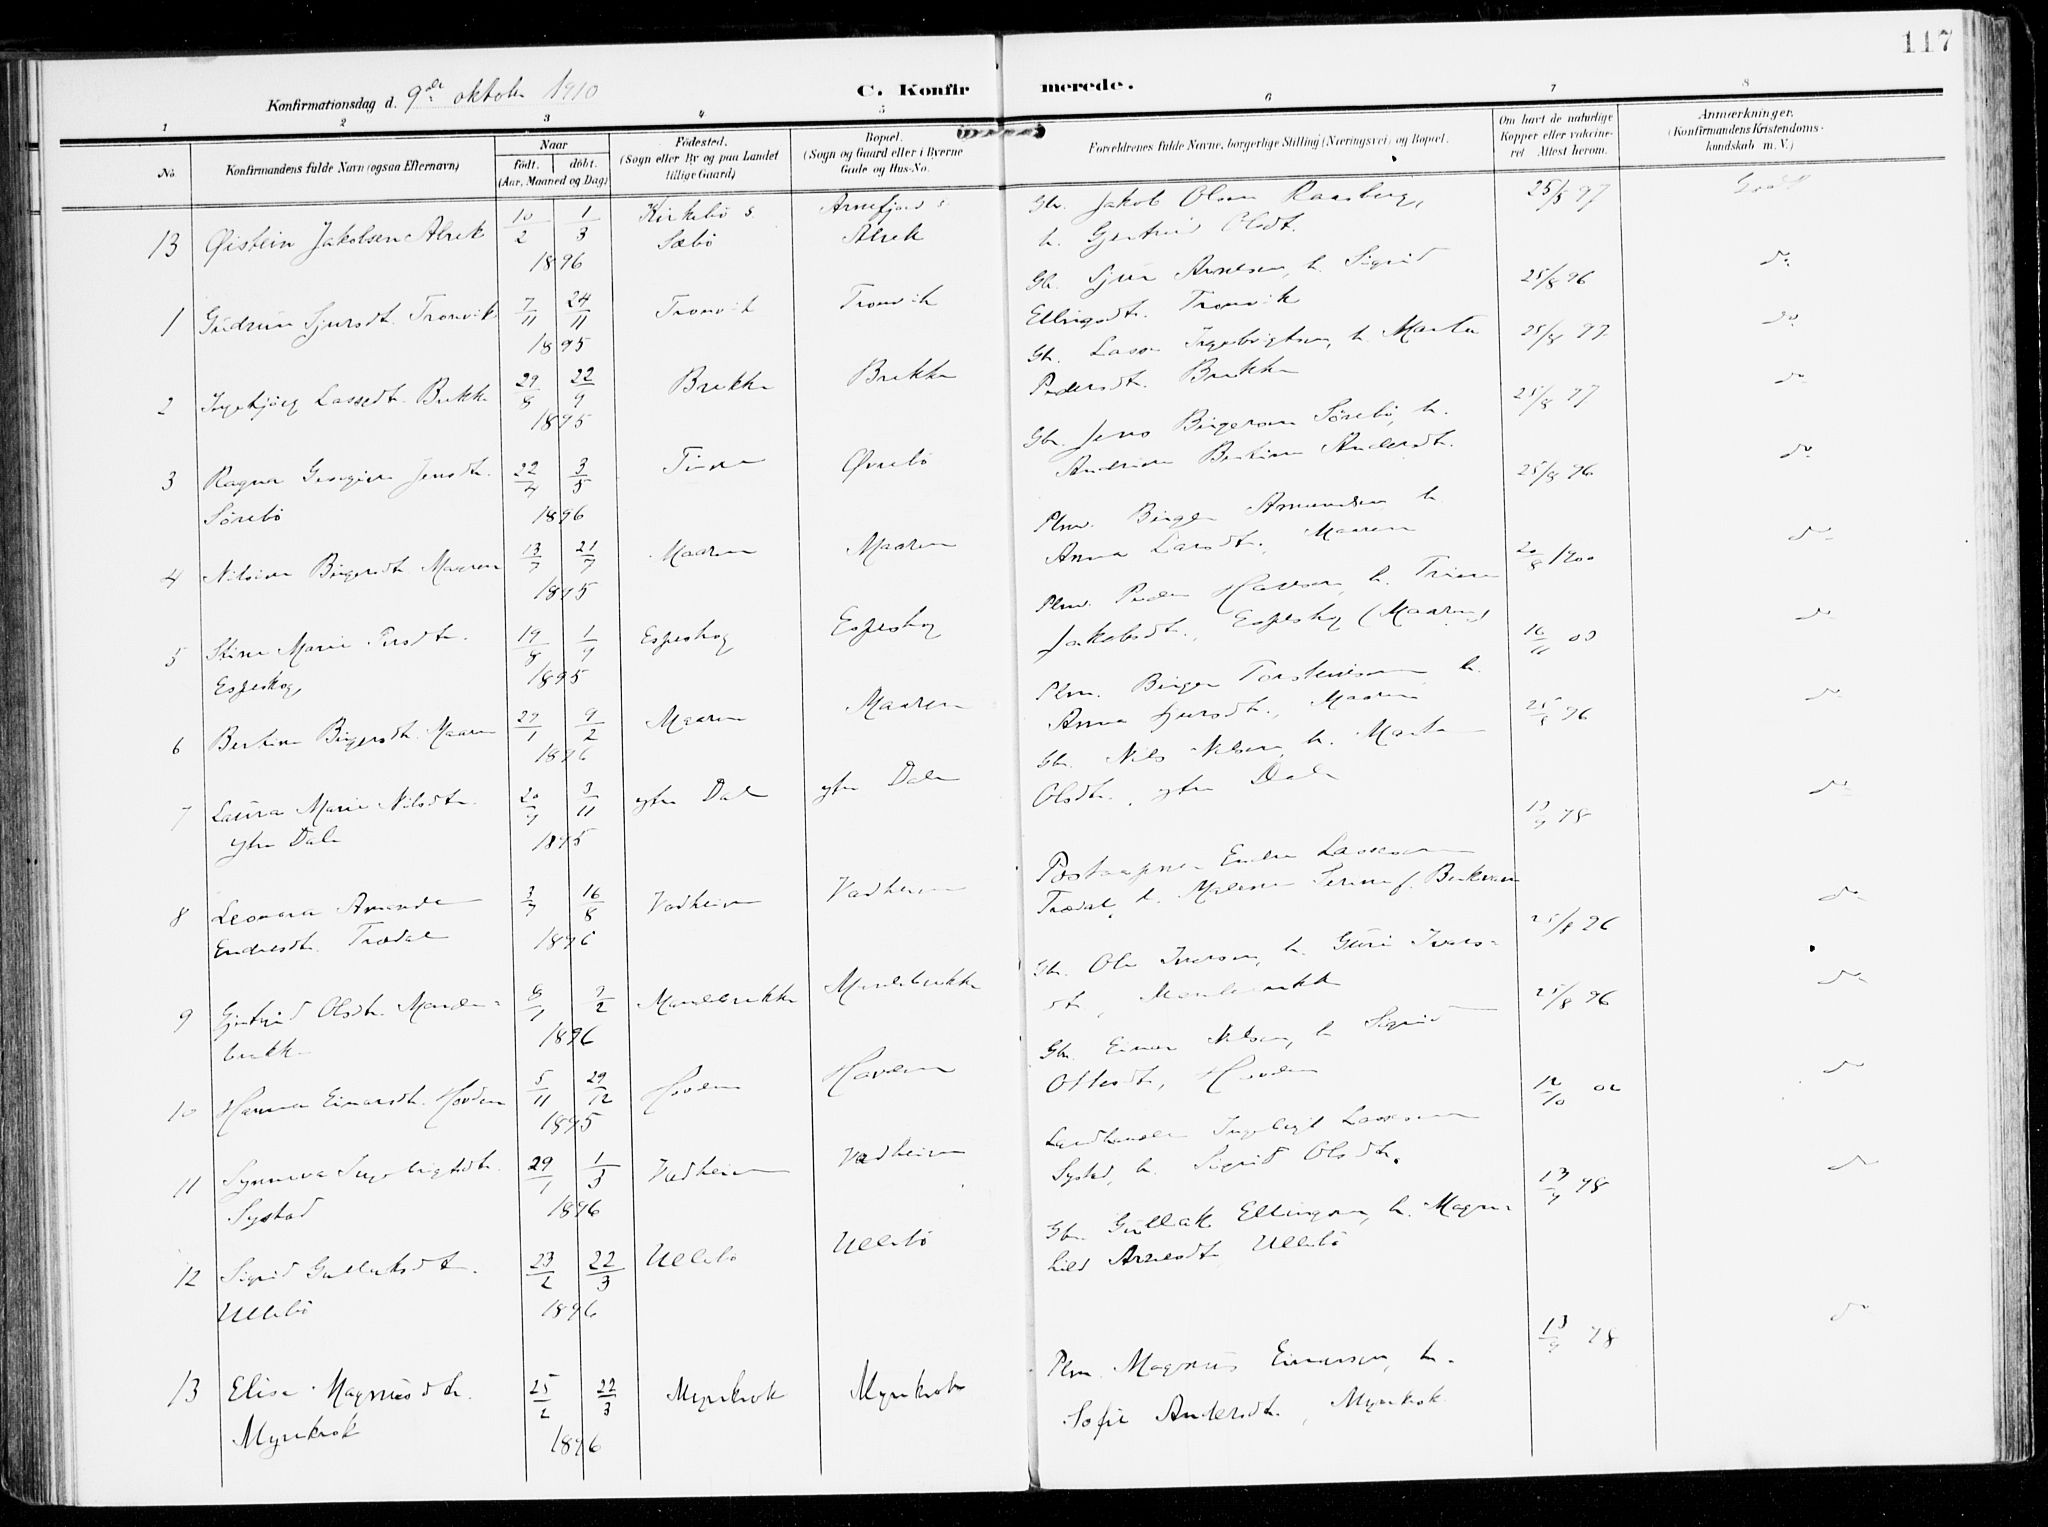 117
Konfirmationsdag d. 9de oktober 1910
C. Konfirmerede.
1 2 3 4 5 6 7 8
No.
Konfirmandens fulde Navn (ogsaa Efternavn)
Naar
födt. döbt.
(Aar, Maaned og Dag)
Födested.
(Sogn eller By og paa Landet
tillige Gaard)
Bopæl.
(Sogn og Gaard eller i Byerne
Gade og Hus-No.
Forældrenes fulde Navne, borgerlige Stilling (Næringsvei) og Bopæl.
Om havt de naturlige
Kopper eller vakcine-
ret Attest herom.
Anmærkninger.
(Konfirmandens Kristendoms-
kundskab m. V.)
13 Øistein Jakobsen Alrek 10/2 1/3 1896 Kirkebö s. Sæbö Arnefjord s. Alrek
Gbr. Jakob Olsen Raasberg,
h. Gjertrud Olsdt. 25/8 97 Godt
1 Gudrun Sjursdt. Tronvik 7/11 24/11 1895 Tronvik Tronvik
Gbr. Sjur Arnesen, h. Sigrid
Ellingsdt. Tronvik 25/8 96 do
2 Ingebjörg Lassedt. Brekke 29/8 22/9 1895 Brekke Brekke
Gbr. Lasse Ingebrigtsen, h. Marta
Pedersdt. Brekke 25/8 97 do
3 Ragna Jensdt.
Sörebö 22/4 3/5 1896 Øvrebö
Gbr. Jens Birgersen Sörebö, h.
Andrine Bertine Andersdt. 25/8 97 do
4 Nilsine Birgersdt. Maaren 13/7 21/7 1895 Maaren Maaren
Plm. Birger Amundsen h.
Anna Larsdt., Maaren 25/8 96 do
5 Stine Marie Persdt.
Espeskog 19/8 1/9 1895 Espeskog Espeskog
Plm. Peder h.
Jakobsdt., Espeskog (Maaren) 20/8 1900 do
6 Bertine Birgersdt. Maaren 29/1 9/2 1896 Maaren Maaren
Plm. Birger Torsteinsen h.
Anna Sjursdt., Maaren 16/11 03 do
7 Laura Marie Nilsdt.
ytre Dale 20/9 3/11 1895 ytre Dale ytre Dale
Gbr. Nils Nilsen, h. Marta
Olsdt., ytre Dale 25/8 96 do
8 Leonora Amanda
Endresdt. Trædal 3/7 16/8 1896 Vadheim Vadheim
Postaapner Endre Lassesen
Trædal, h. Malene Serine f. 13/9 98 do
9 Gjertrud Olsdt. Mande-
brekke 8/1 9/2 1896 Mandebrekke Mandebrekke
Gbr. Ole Iversen, h. Guri Ivers-
dt., Mandebrekke 25/8 96 do
10 Hanna Einarsdt. Hovden 5/11 29/12 1895 Hovden Hovden
Gbr. Einar Nilsen, h. Sigrid
Ottesdt, Hovden 25/8 96 do
11 Synneva Ingebrigtsdt.
Systad 29/1 1/3 1896 Vadheim Vadheim
Landhandler Ingebrigt Lassesen
Systad, h. Sigrid Olsdt. 12/10 02 do
12 Sigrid Gullaksdt.
Ullebö 23/2 22/3 1896 Ullebö Ullebö
Gbr. Gullak Ellingsen, h. Magn-
hild Arnesdt. Ullebö 13/9 98 do
13 Elise Magnusdt.
Myrekrok 25/2 22/3 1896 Myrekrok Myrekrok
Plm. Magnus Einarsen, h.
Sofie Andersdt., Myrekrok. 13/9 98 do